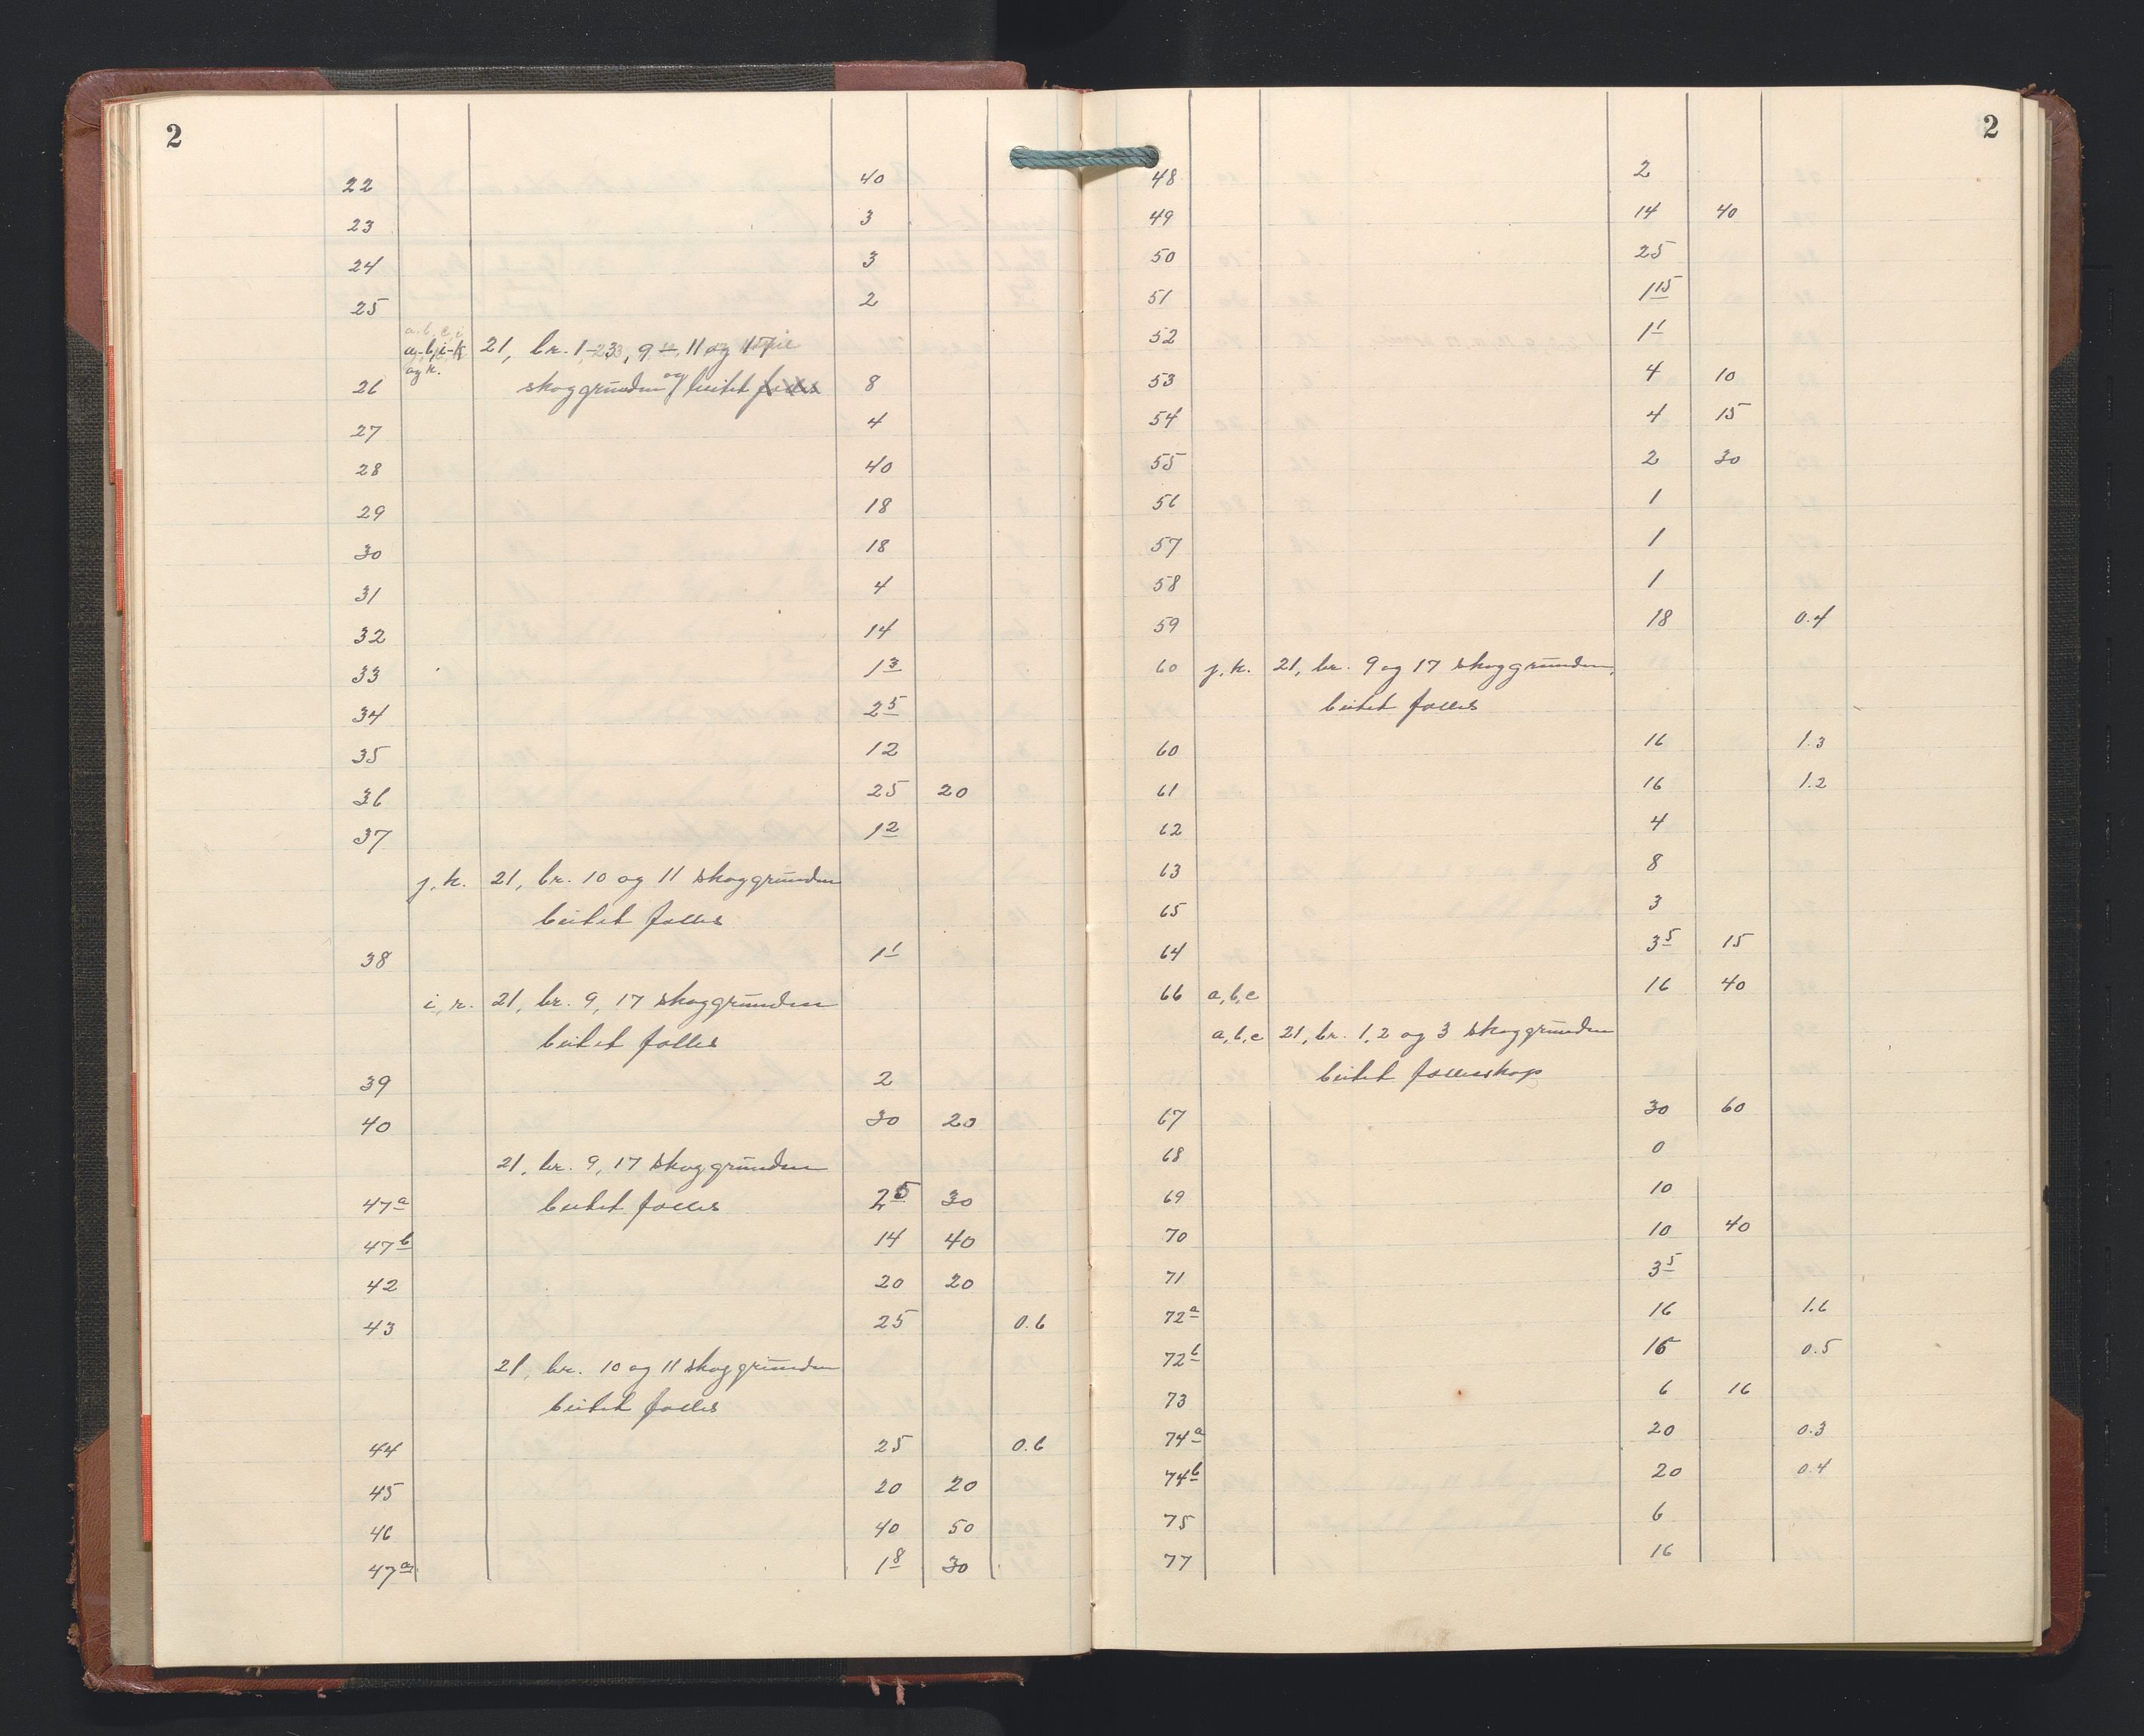 2
22 40
23 3
24 3
25 2
a-b, i-k 21, br. 1-3, 9 11 og 17
og r.
26 skoggrunden og beitet 8
27 4
28 40
29 18
30 18
31 4
32 14
33 1 3
34 2 5
35 12
36 25 20
37 1 2
j, k. 21, br. 10 og 11 skoggrunden
beitet felles
38 1 1
i, r. 21, br. 9, 17 skoggrunden
beitet felles
39 2
40 30 20
21, br. 9, 17 skoggrunden
47a beitet felles 2 5 30
47b 14 40
42 20 20
43 25 0.6
21, br. 10 og 11 skoggrunden
beitet felles
44 25 0.6
45 20 20
46 40 50
47a 1 8 30
2
48 2
49 14 40
50 25
51 1 15
52 1 1
53 4 10
54 4 15
55 2 30
56 1
57 1
58 1
59 18 0.4
60 j, k. 21, br. 9 og 17 skoggrunden,
beitet felles
60 16 1.3
61 16 1.2
62 4
63 8
65 3
64 3 5 15
66 a, b, c 16 40
a, b, c 21, br. 1, 2 og 3 skoggrunden
beitet felleskap
67 30 60
68 0
69 10
70 10 40
71 3 5
72a 16 1.6
72b 16 0.5
73 6 16
74a 20 0.3
74b 20 0.4
75 6
77 16